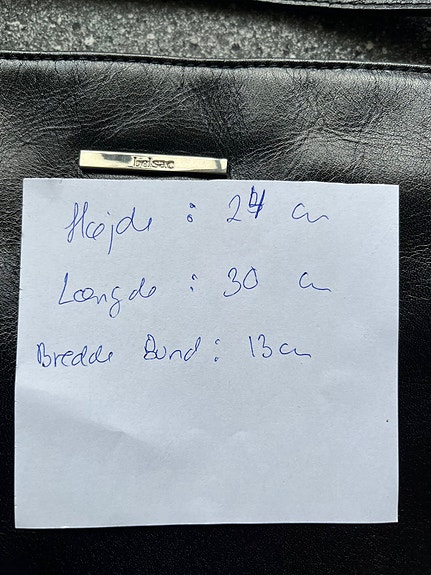 belsac
Højde : 24 cm
Længde : 30 cm
Bredde Bund : 13 cm